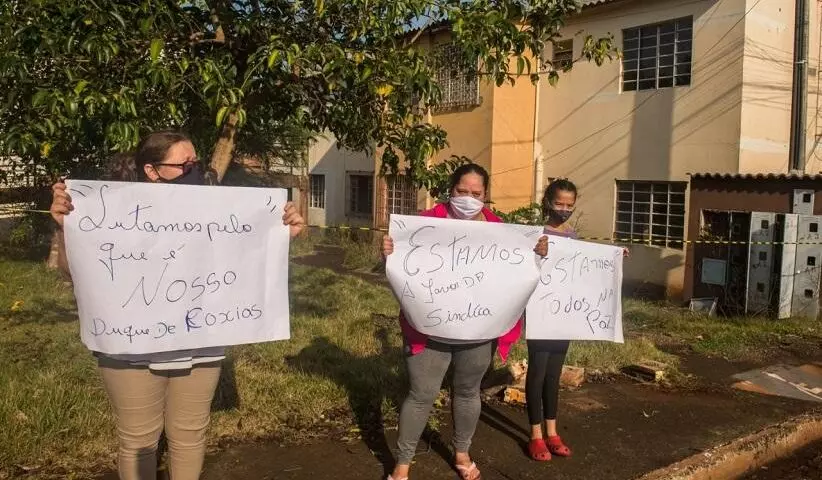 "Lutamos pelo
que é
Nosso
Duque De Coxias
"Estamos
A favor DA
Sindica
"Estamos
Todos NA
Paz